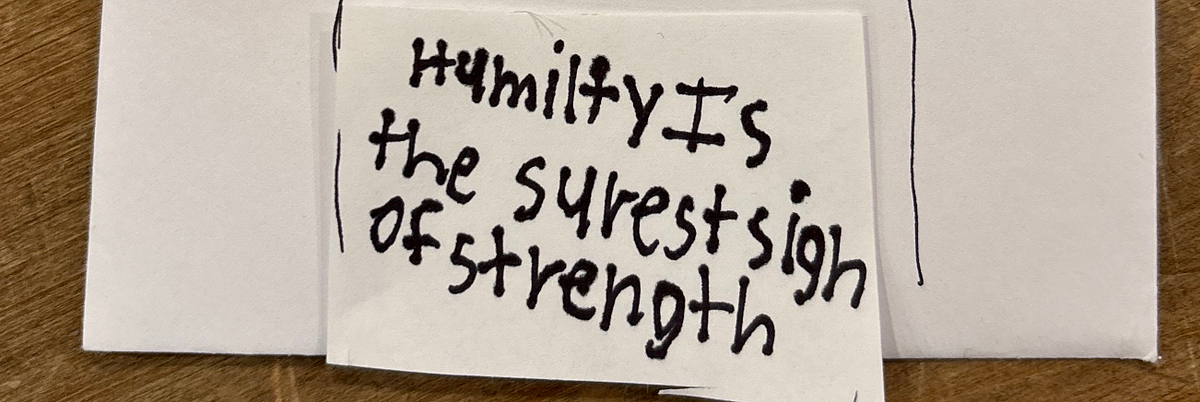 Humilty Is
the surest sign
of strength